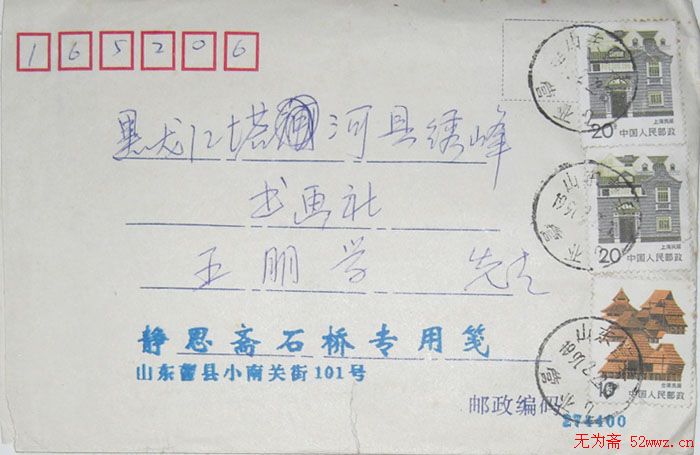 165206
黑龙江塔河县绣峰
书画社
王朋学 先生
静思斋石桥专用笺
山东曹县小南关街101号
邮政编码
274400
20 中国人民邮政
上海民居
20 中国人民邮政
上海民居
中国人民邮政
台湾民居
山东
山东
山东
无为斋 52wwz.cn